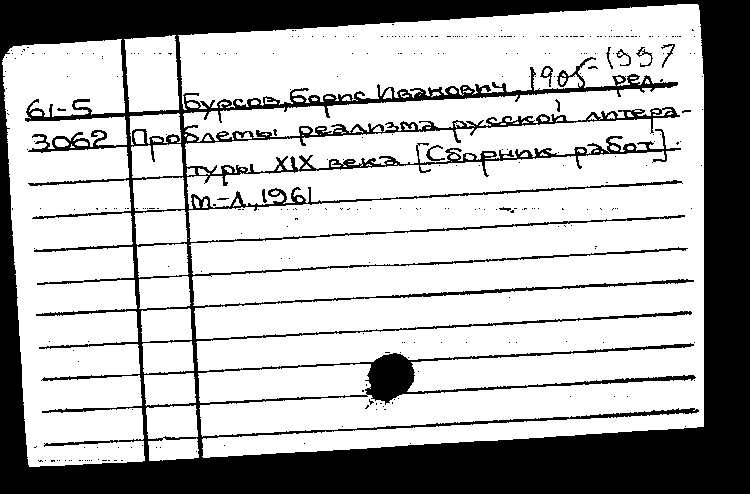 61-5 Бурсов, Борис Иванович, 1905-1997 ред.
3062 Проблемы реализма русской литера-
туры XIX века. [Сборник работ].
М.-Л., 1961